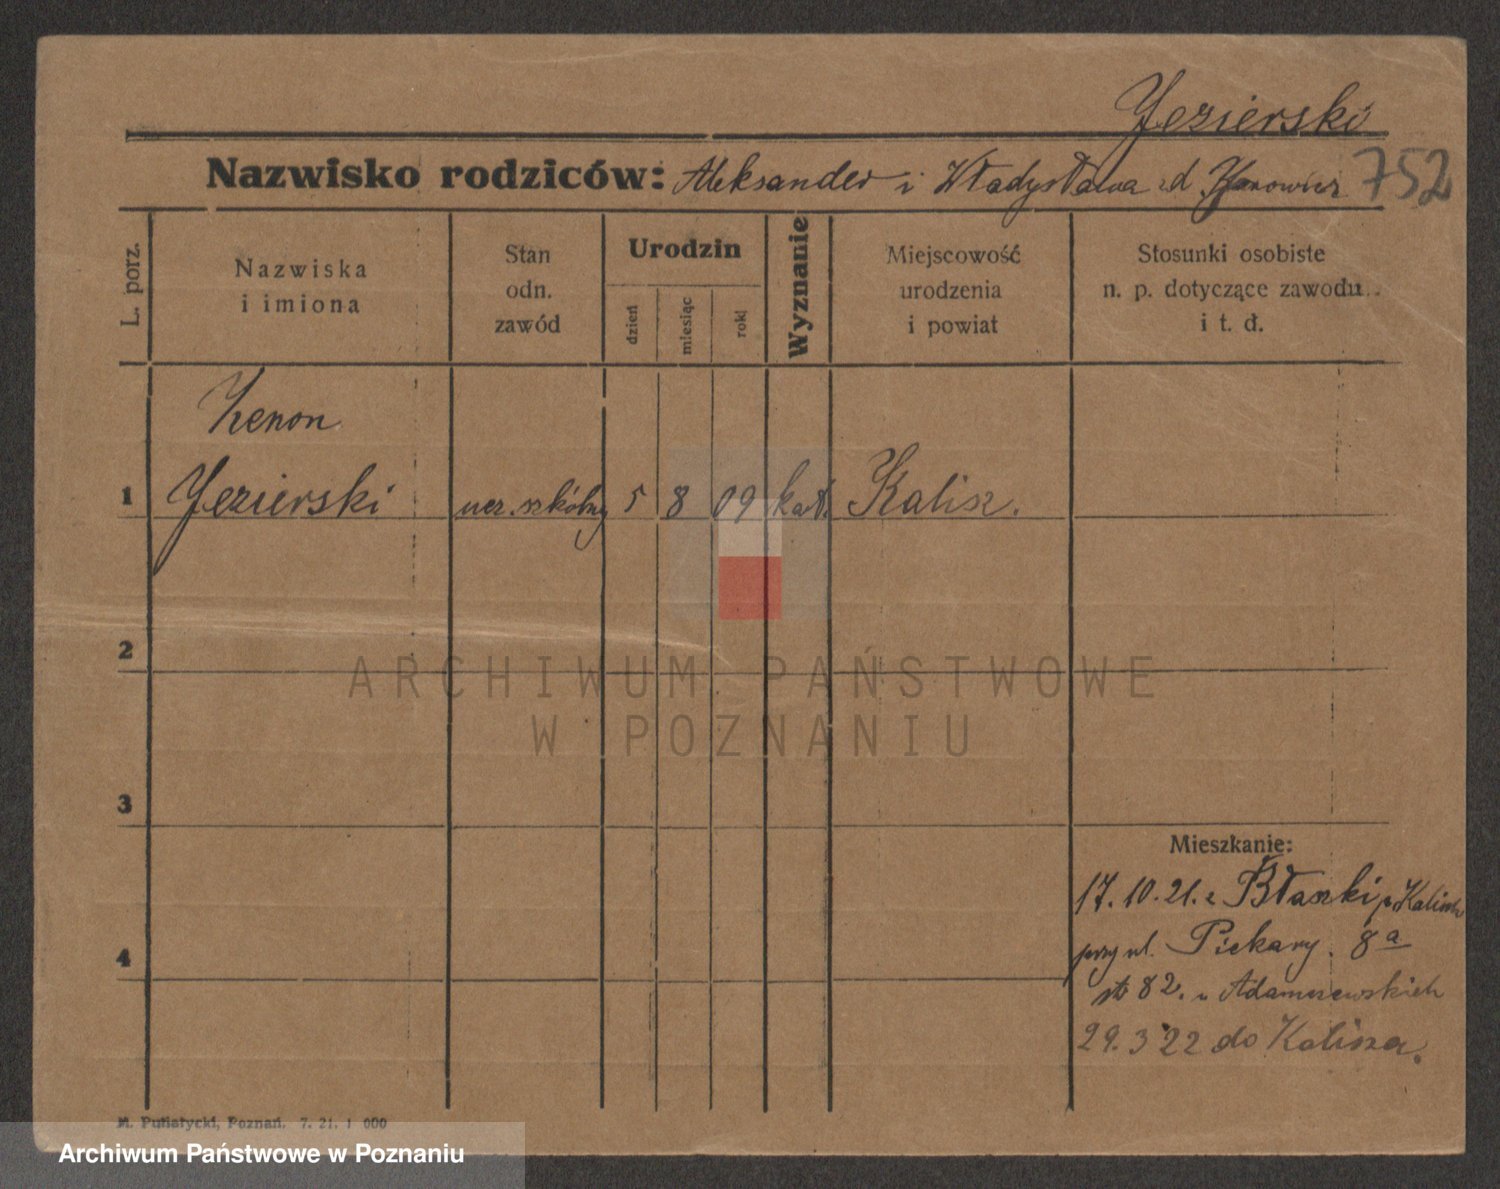 Jezierski
Nazwisko rodziców: Aleksander i Władysława 752
L. porz.
Nazwiska
i imiona
Stan
odn.
zawód
Urodzin
dzień
miesiąc
rok
Wyznanie
Miejscowość
urodzenia
i powiat
Stosunki osobiste
n. p. dotyczące zawodu
i t. d.
Zenon
1 Jezierski ucz. szkólny 5 8 09 kat. Kalisz.
2
3
4
Mieszkanie:
17. 10. 21. z Błaszki p. Kalisch
przy ul. Piekary. 8a
82. u Adamczewskich
29. 3 22 do Kalisza.
M. Putiatycki, Poznań. 7. 21. 1 000
ARCHIWUM PAŃSTWOWE
W POZNANIU
Archiwum Państwowe w Poznaniu